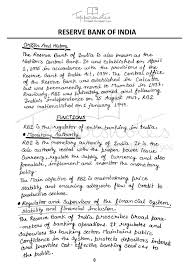 RESERVE BANK OF INDIA
Origin And History
The Reserve Bank of India is also known as the
Nations Central Bank. It was established on April
1, 1935 in accordance with the provisions of the
Reserve Bank of India Act, 1934. The central office
of the Reserve Bank was established in Calcutta
but was permanently moved to Mumbai in 1937.
Reserve Bank was privately owned and following
India's independence on 15 August 1947, RBI
was nationalised on 1 January 1949.
FUNCTIONS
RBI is the regulator of entire banking in India.
Monetary Authority
RBI is the monetary authority of India. It is the
sole authority vested with the power to issue
Currency, regulate the supply of currency and also
formulate, implement and monitor the monetary
policy.
The main objective of RBI is maintaining price
stability and ensuring adequate flow of credit to
productive sectors.
Regulator and Supervisor of the Financial System,
Stability and financial inclusion.
The Reserve Bank of India prescribes broad para-
meters of banking operations. It regulates and
Supervises the banking sector, maintains public
Confidence in the System, protects depositors interest
and provides cost-effective banking services
to the public.